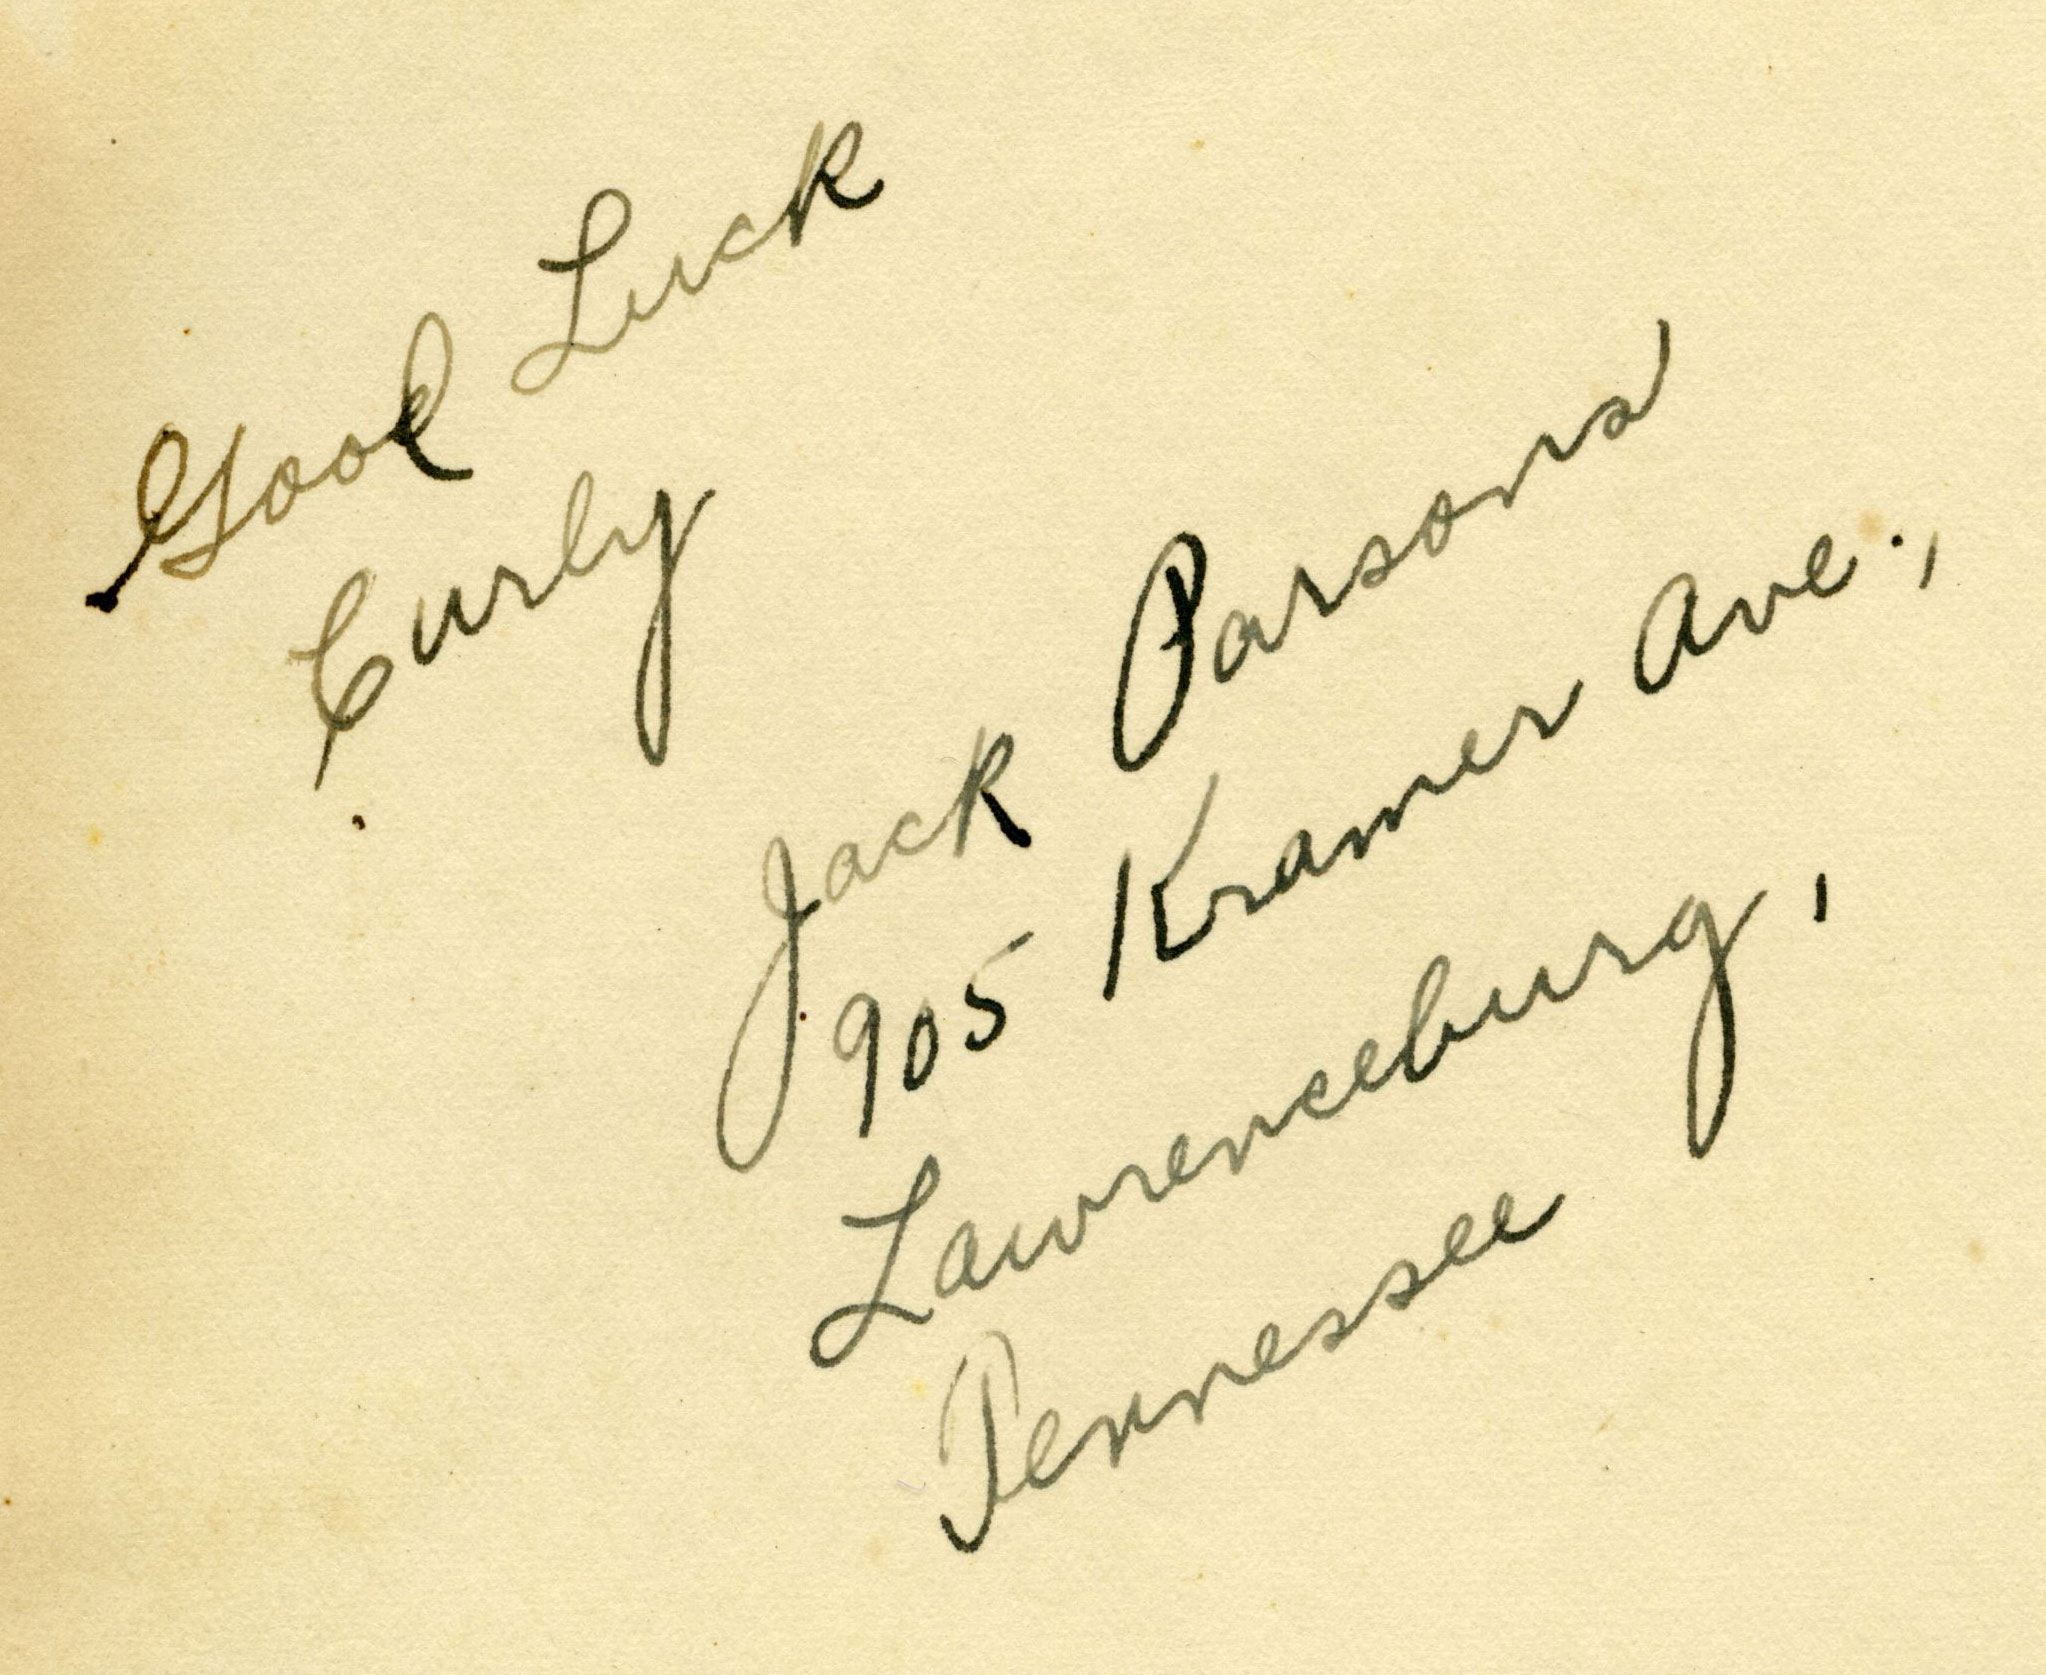 Good Luck
Curly
Jack Parsons
905 Kramer Ave.,
Lawrenceburg,
Tennessee